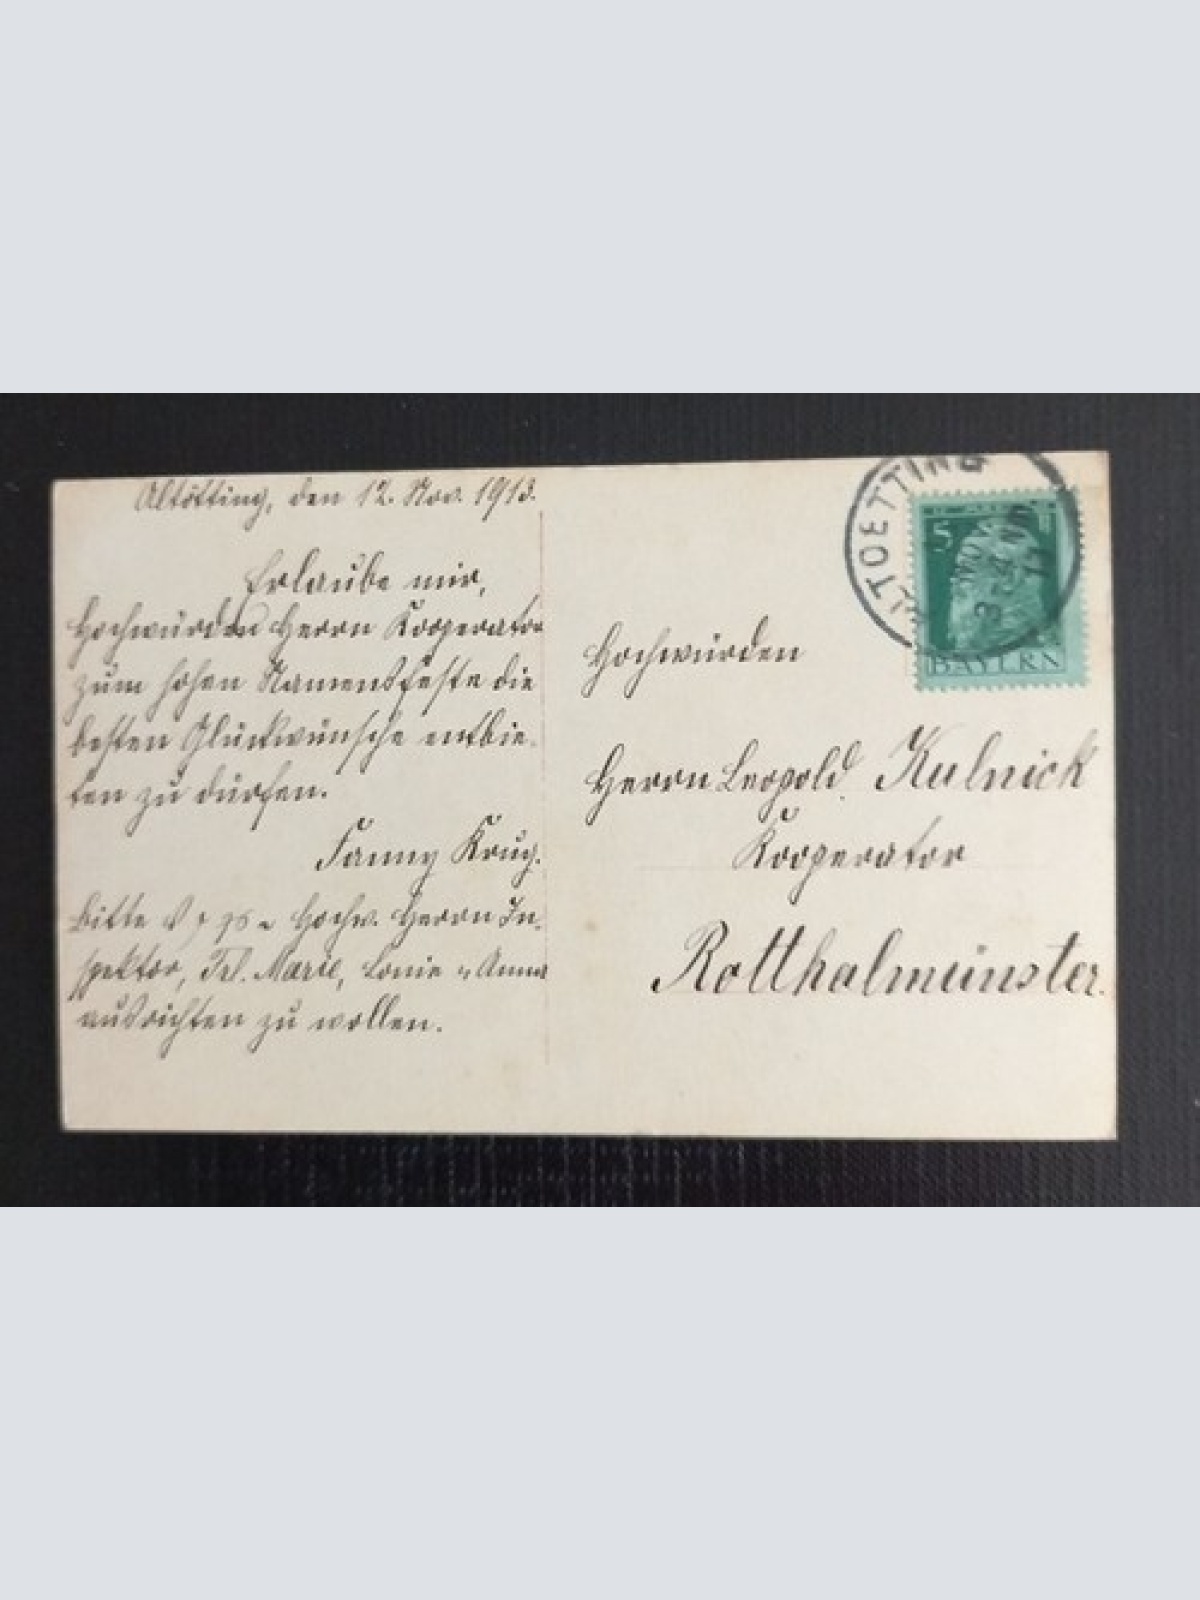 Altötting, den 12. Nov. 1913.
Erlaube mir,
Hochwürden Herrn Kooperator
zum hohen Namensfeste die
besten Glückwünsche entbie-
ten zu dürfen.
Fanny Krug.
Bitte Hochw. Herrn In-
spektor, Frl. Marie, u. Anna
ausrichten zu wollen.
ALTOETTING
12 NOV
5
BAYERN
Hochwürden
Herrn Leopold Kulnick
Kooperator
Rotthalmünster.